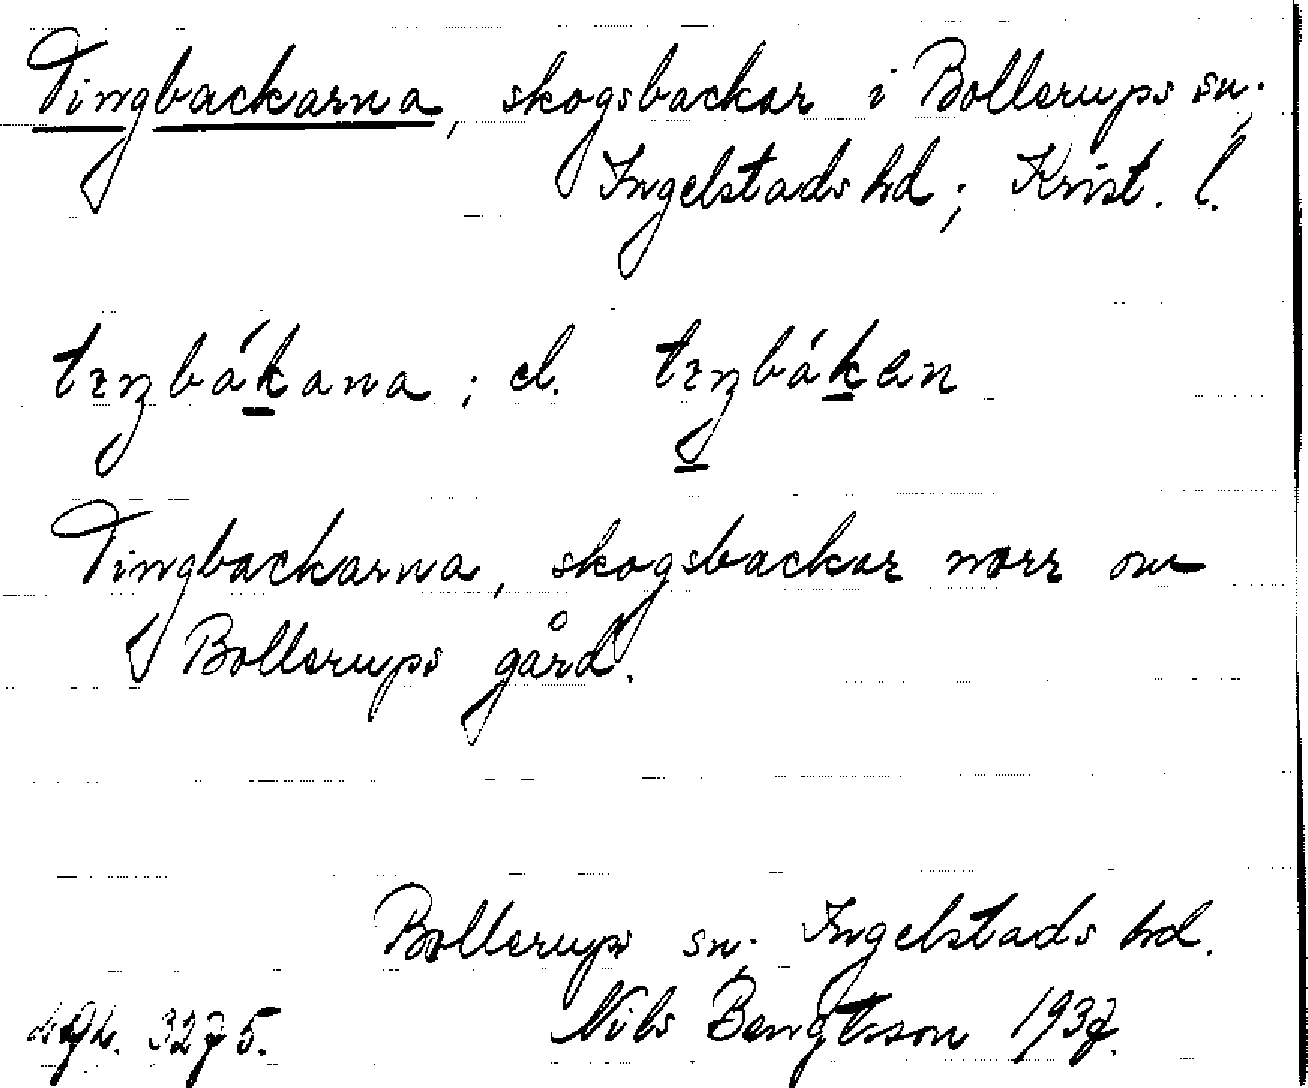 Tingbackarna, skogsbackar i Bollerups sn.
Ingelstads hd; Krist. l.
tɪŋbákana; el. tɪŋbáken
Tingbackarna, skogsbackar norr om
Bollerups gård.
Bollerups sn. Ingelstads hd.
Nils Bengtsson 1937.
3275.